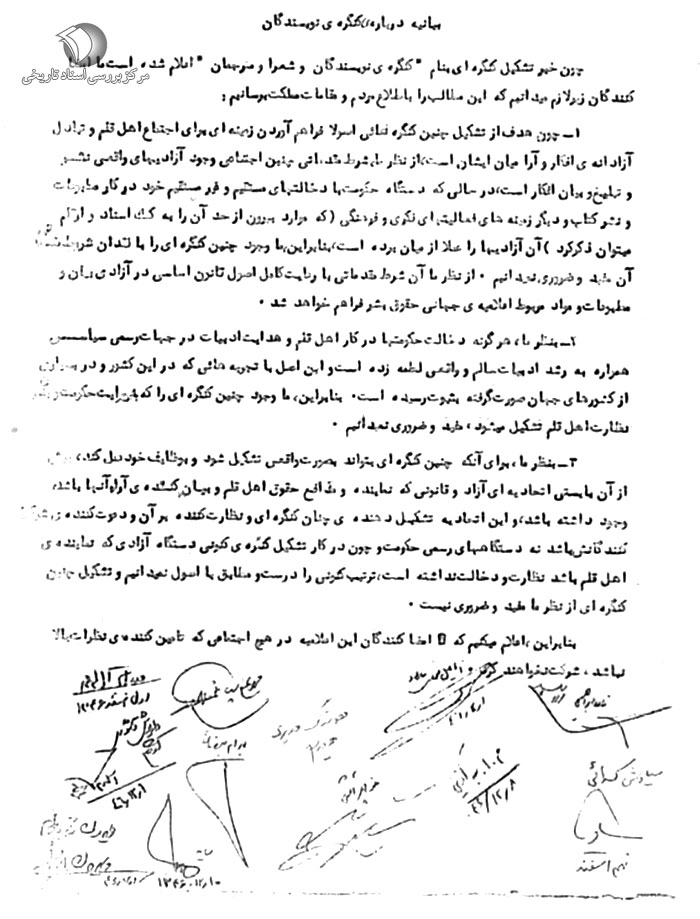 بیانیه درباره‌ی کنگره‌ی نویسندگان
مرکز بررسی اسناد تاریخی
چون خبر تشکیل کنگره ای بنام " کنگره ی نویسندگان و شعرا و مترجمان " اعلام شده است ما امضا
کنندگان زیر لازم میدانیم که این مطالب را باطلاع مردم و مقامات مملکت برسانیم :
۱ــ چون هدف از تشکیل چنین کنگره هائی اصولا فراهم آوردن زمینه ای برای اجتماع اهل قلم و تبادل
آزادانه ی افکار و آرا میان ایشان است، از نظر ما شرط مقدماتی چنین اجتماعی وجود آزادیهای واقعی نشر
و تبلیغ و بیان افکار است، در حالی که دستگاه حکومت با دخالتهای مستقیم و غیر مستقیم خود در کار مطبوعات
و نشر کتاب و دیگر زمینه های فعالیتهای فکری و فرهنگی ( که موارد بیرون از حد آن را به کمک اسناد و ارقام
میتوان ذکر کرد ) آن آزادیها را عملا از میان برده است، بنابراین، ما وجود چنین کنگره ای را با فقدان شرایط
آن مفید و ضروری نمیدانیم ۰ از نظر ما آن شرط مقدماتی با رعایت کامل اصول قانون اساسی در آزادی بیان و
مطبوعات و مواد مربوط اعلامیه ی جهانی حقوق بشر فراهم خواهد شد ۰
۲ــ بنظر ما، هرگونه دخالت حکومتها در کار اهل قلم و هدایت ادبیات در جهات رسمی سیاسی
همواره به رشد ادبیات سالم و واقعی لطمه زده است و این اصل با تجربه هائی که در این کشور و در بسیاری
از کشورهای جهان صورت گرفته بثبوت رسیده است ۰ بنابراین، ما وجود چنین کنگره ای را که
نظارت اهل قلم تشکیل میشود، مفید و ضروری نمیدانیم ۰
۳ــ بنظر ما، برای آنکه چنین کنگره ای بتواند بصورت واقعی تشکیل شود و بوظایف خود عمل کند، پیش
از آن بایستی اتحادیه ای آزاد و قانونی که نماینده و مدافع حقوق اهل قلم و بیان کننده ی آراء آنها باشد،
وجود داشته باشد، و این اتحادیه تشکیل دهنده ی چنان کنگره ای و نظارت کننده بر آن و دعوت کننده ی شرکت
کنندگانش باشد نه دستگاههای رسمی حکومت و چون در کار تشکیل کنگره ی کنونی دستگاه آزادی که نماینده ی
اهل قلم باشد نظارت و دخالت نداشته است، ترتیب کنونی را درست و مطابق با اصول نمیدانیم و تشکیل چنین
کنگره ای از نظر ما مفید و ضروری نیست ۰
بنابراین، اعلام میکنیم که ما امضا کنندگان این اعلامیه در هیچ اجتماعی که تامین کننده ی نظرات بالا
نباشد، شرکت نخواهیم کرد
اول اسفند ۱۳۴۶
داریوش آشوری
نادر ابراهیمی
بهرام بیضائی
م.ا. به آذین
۴۶/۱۲/۸
سیاوش کسرائی
نهم اسفند
۱۳۴۶/۱۲/۱۰